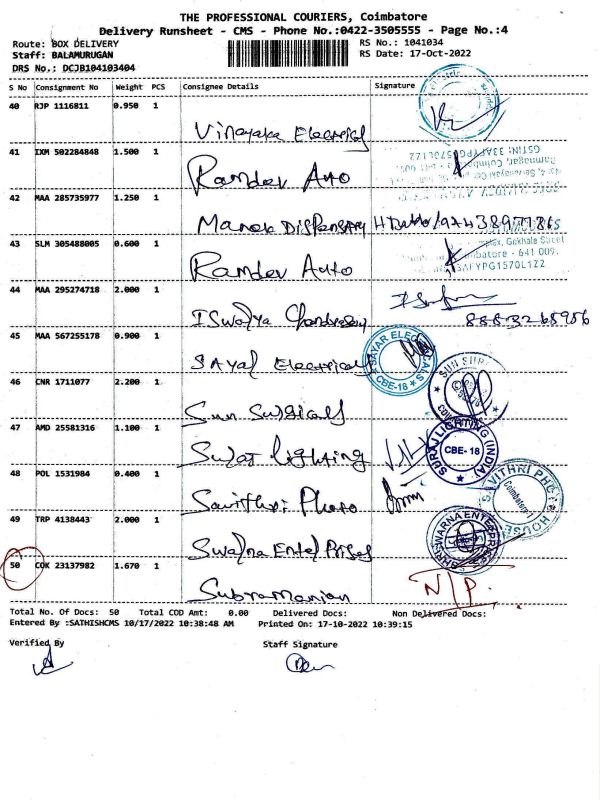 THE PROFESSIONAL COURIERS, Coimbatore
Delivery Runsheet - CMS - Phone No.:0422-3505555 - Page No.:4
Route: BOX DELIVERY
RS No.: 1041034
Staff: BALAMURUGAN
RS Date: 17-Oct-2022
DRS No.: DCJB104103404
S No Consignment No Weight PCS Consignee Details Signature
40 RJP 1116811 0.950 1
Vinayaka Electrical
41 IXM 502284848 1.500 1
Ramdev Auto
42 MAA 285735977 1.250 1
Manek Dispensary
43 SLM 305488005 0.600 1
Ramdev Auto
Gokhale Street
batore - 641 009.
44 MAA 295274718 2.000 1
ISwalya
8883265956
45 MAA 567255178 0.900 1
Sayal Electricals
SAYAR ELECTRICALS
CBE-18
46 CNR 1711077 2.200 1
Sun Surgicals
47 AMD 25581316 1.100 1
Surat lighting
SURAJ LIGHTING (INDIA)
CBE-18
48 POL 1531984 0.400 1
Savithri Photo
SAVITHRI PHOTO HOUSE
Coimbatore
49 TRP 4138443 2.000 1
Swarna Enterprises
SHRI SWARNA ENTERPRISES
50 COK 23137982 1.670 1
Subramanian
N/P.
Total No. Of Docs: 50 Total COD Amt: 0.00 Delivered Docs: Non Delivered Docs:
Entered By :SATHISHCMS 10/17/2022 10:38:48 AM Printed On: 17-10-2022 10:39:15
Verified By Staff Signature